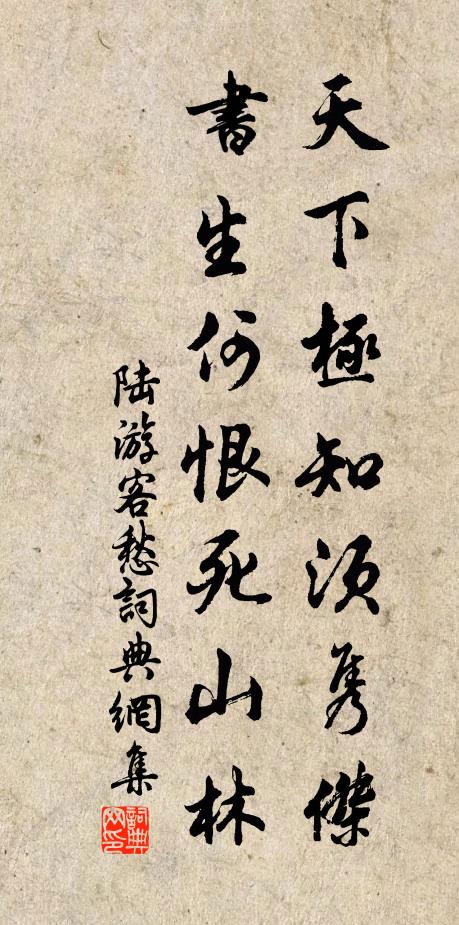 天下極知須雋傑
書生何恨死山林
陆游客愁詞典網集
詞典网印